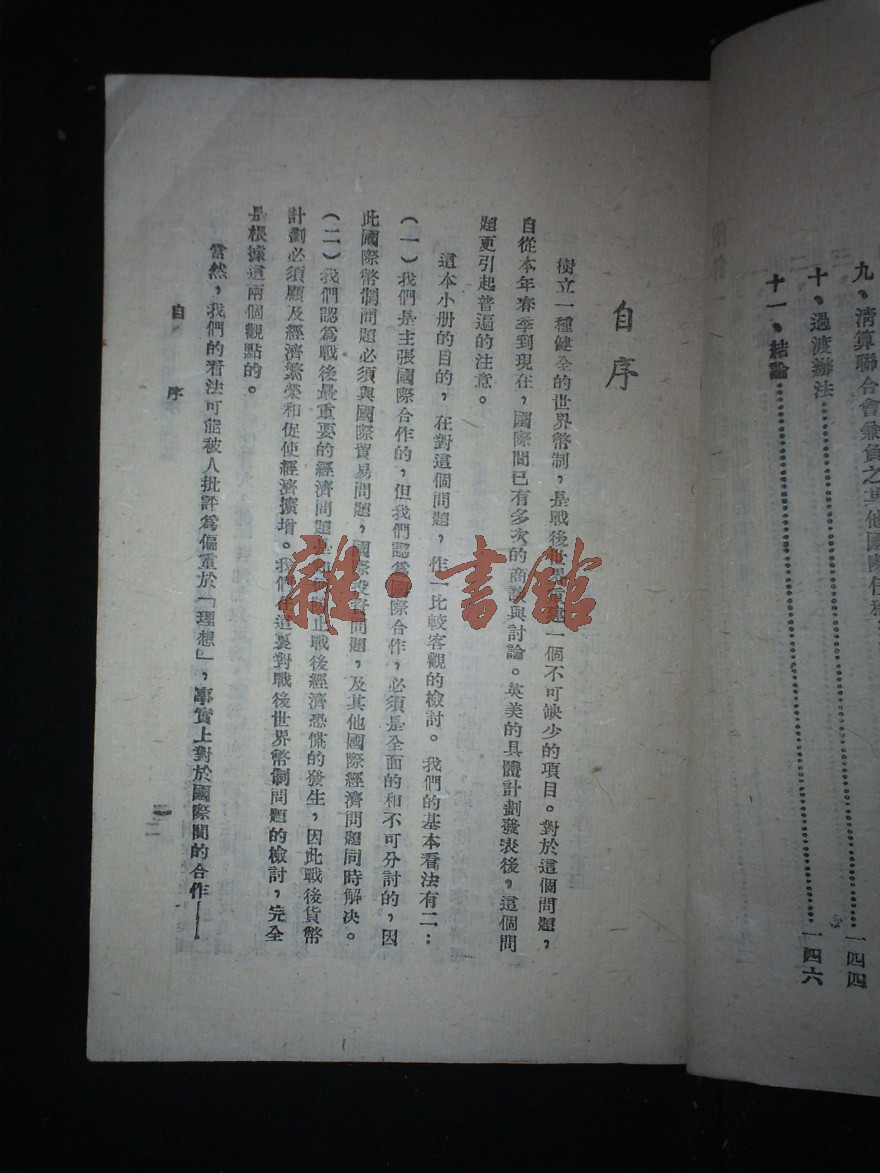 九、清算聯合會兼負之其他國際任務
十、過渡辦法……………………一四四
十一、結論……………………一四六
自序
樹立一種健全的世界幣制，是戰後世界重建一個不可缺少的項目。對於這個問題，
自從本年春季到現在，國際間已有多次的商談與討論。英美的具體計劃發表後，這個問
題更引起普遍的注意。
這本小册的目的，在對這個問題，作一比較客觀的檢討。我們的基本看法有二：
（一）我們是主張國際合作的，但我們認爲國際合作，必須是全面的和不可分討的，因
此國際幣制問題必須與國際貿易問題，國際投資問題，及其他國際經濟問題同時解决。
（二）我們認爲戰後最重要的經濟問題是如何防止戰後經濟恐慌的發生，因此戰後貨幣
計劃必須顧及經濟繁榮和促使經濟擴增。我們在這裏對戰後世界幣制問題的檢討，完全
是根據這兩個觀點的。
當然，我們的看法可能被人批評爲偏重於「理想」，事實上對於國際間的合作——
自序
一
雜·書館